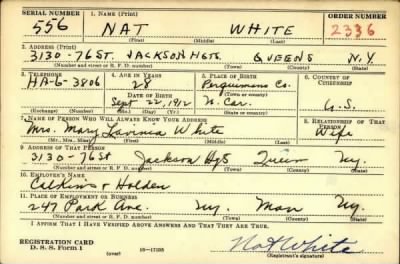 SERIAL NUMBER 1. NAME (Print) ORDER NUMBER
556 NAT WHITE 2336
(First) (Middle) (Last)
2. ADDRESS (Print)
3130-76 ST. JACKSON HGTS. QUEENS N.Y.
(Number and street or R. F. D. number) (Town) (County) (State)
3. TELEPHONE 4. AGE IN YEARS 5. PLACE OF BIRTH 6. COUNTRY OF CITIZENSHIP
HA-6-3806 28 Perquimans Co.
DATE OF BIRTH (Town or county)
Sept 22, 1912 N. Car. U.S.
(Exchange) (Number) (Mo.) (Day) (Yr.) (State or country)
7. NAME OF PERSON WHO WILL ALWAYS KNOW YOUR ADDRESS 8. RELATIONSHIP OF THAT PERSON
Mrs. Mary Lavinia White Wife
(Mr., Mrs., Miss) (First) (Middle) (Last)
9. ADDRESS OF THAT PERSON
3130-76 St Jackson Hgs Ny.
(Number and street or R. F. D. number) (Town) (County) (State)
10. EMPLOYER'S NAME
Calkins & Holden
11. PLACE OF EMPLOYMENT OR BUSINESS
247 Park Ave. Ny. Man Ny.
(Number and street or R. F. D. number) (Town) (County) (State)
I AFFIRM THAT I HAVE VERIFIED ABOVE ANSWERS AND THAT THEY ARE TRUE.
REGISTRATION CARD
D. S. S. Form 1 (over) Nat White
(Registrant's signature)